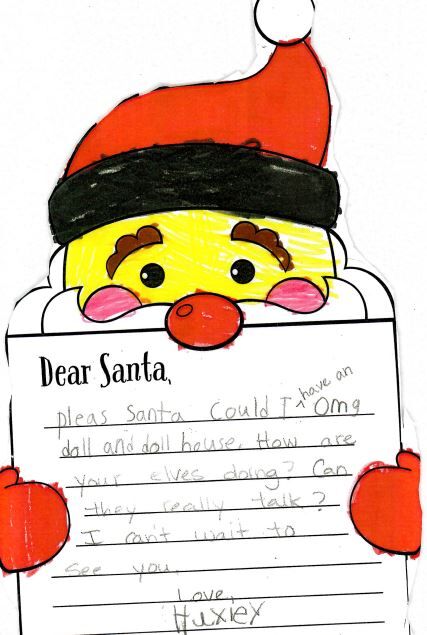 Dear Santa,
pleas Santa could I have an Omg
doll and doll house. How are
your elves doing? Can
they really talk?
I can't wait to
see you.
Love,
Huxley